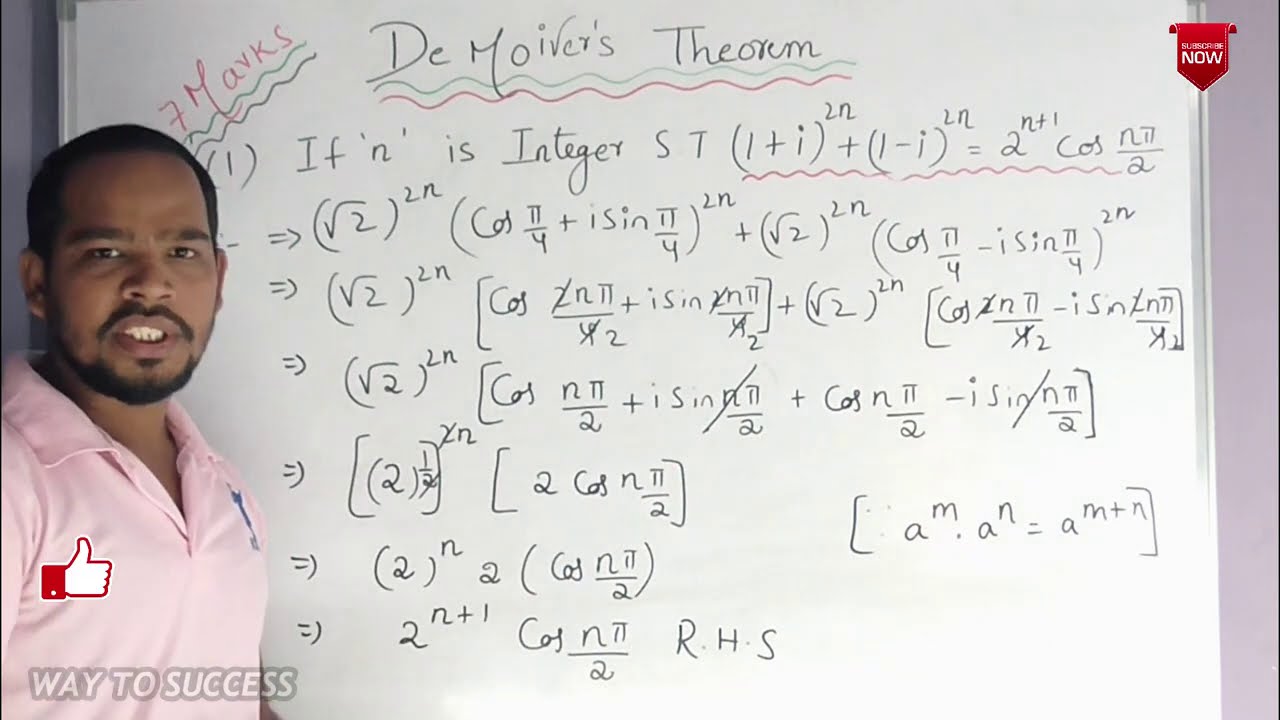 De Moiver's Theorem
7 Marks
SUBSCRIBE
NOW
(1) If 'n' is Integer S T (1+i)^2n + (1-i)^2n = 2^n+1 Cos nπ/2
:- => (√2)^2n (Cos π/4 + i Sin π/4)^2n + (√2)^2n (Cos π/4 - i Sin π/4)^2n
=> (√2)^2n [Cos 2nπ/4 2 + i Sin 2nπ/4 2] + (√2)^2n [Cos 2nπ/4 2 - i Sin 2nπ/4 2]
=> (√2)^2n [Cos nπ/2 + i Sin nπ/2 + Cos nπ/2 - i Sin nπ/2]
=> [(2)^1/2]^2n [2 Cos nπ/2]
[∵ a^m . a^n = a^m+n]
=> (2)^n 2 (Cos nπ/2)
=> 2^n+1 Cos nπ/2 R.H.S
WAY TO SUCCESS